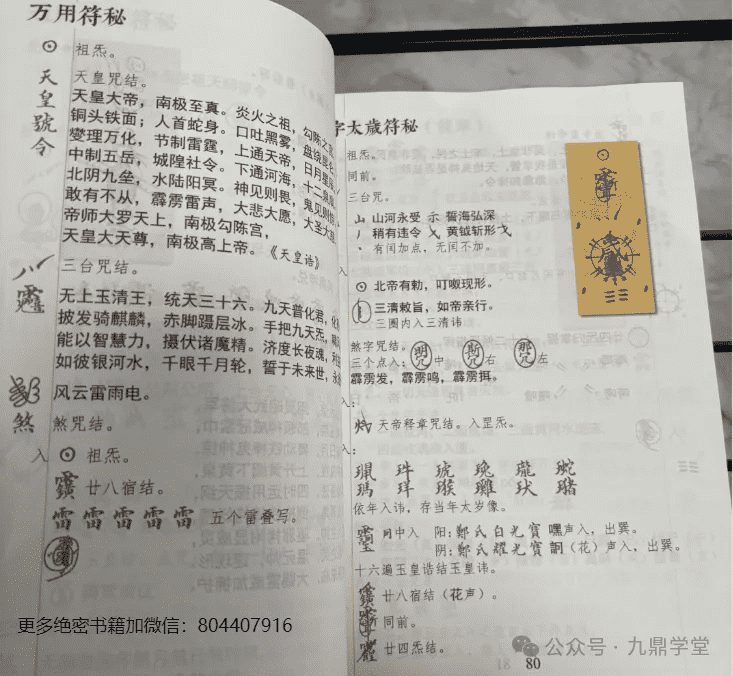 万用符秘
祖炁。
天皇號令
天皇咒结。
天皇大帝，南极至真。炎火之祖，勾陈之
铜头铁面；人首蛇身。口吐黑雾，盘绕
燮理万化，节制雷霆，上通天帝，日月星
中制五岳，城隍社令。下通河海，十二
北阴九垒，水陆阳冥。神见则畏，鬼见则
敢有不从，霹雳雷声，大悲大愿，大圣大
帝师大罗天上，南极勾陈宫，
天皇大天尊，南极高上帝。《天皇诰》
三台咒结。
无上玉清王，统天三十六。九天普化君，
披发骑麒麟，赤脚蹑层冰。手把九天炁，
能以智慧力，摄伏诸魔精。济度长夜魂，
如彼银河水，千眼千月轮，誓于未来世，
风云雷雨电。
煞
煞咒结。
入
祖炁。
廿八宿结。
雷 雷 雷 雷 雷 五个雷叠写。
更多绝密书籍加微信：804407916
字太歲符秘
祖炁。
同前。
三台咒。
山河永受 示 誓海弘深
稍有违令 黄钺斩形
有闰加点，无闰不加。
入
北帝有勅，叮呶现形。
三清敕旨，如帝亲行。
三圈内入三清讳
煞字咒结。
三个点入： 中 右 左
霹雳发，霹雳鸣，霹雳挕。
入：
灼 天帝释章咒结。入罡炁。
入：
依年入讳，存当年太岁像。
中入 阳：鄭氏白光寳嘿声入，出巽。
阴：鄭氏耀光寳詗（花）声入，出巽。
十六遍玉皇诰结玉皇讳。
廿八宿结（花声）。
同前。
廿四炁结。
公众号·九鼎学堂
18 80